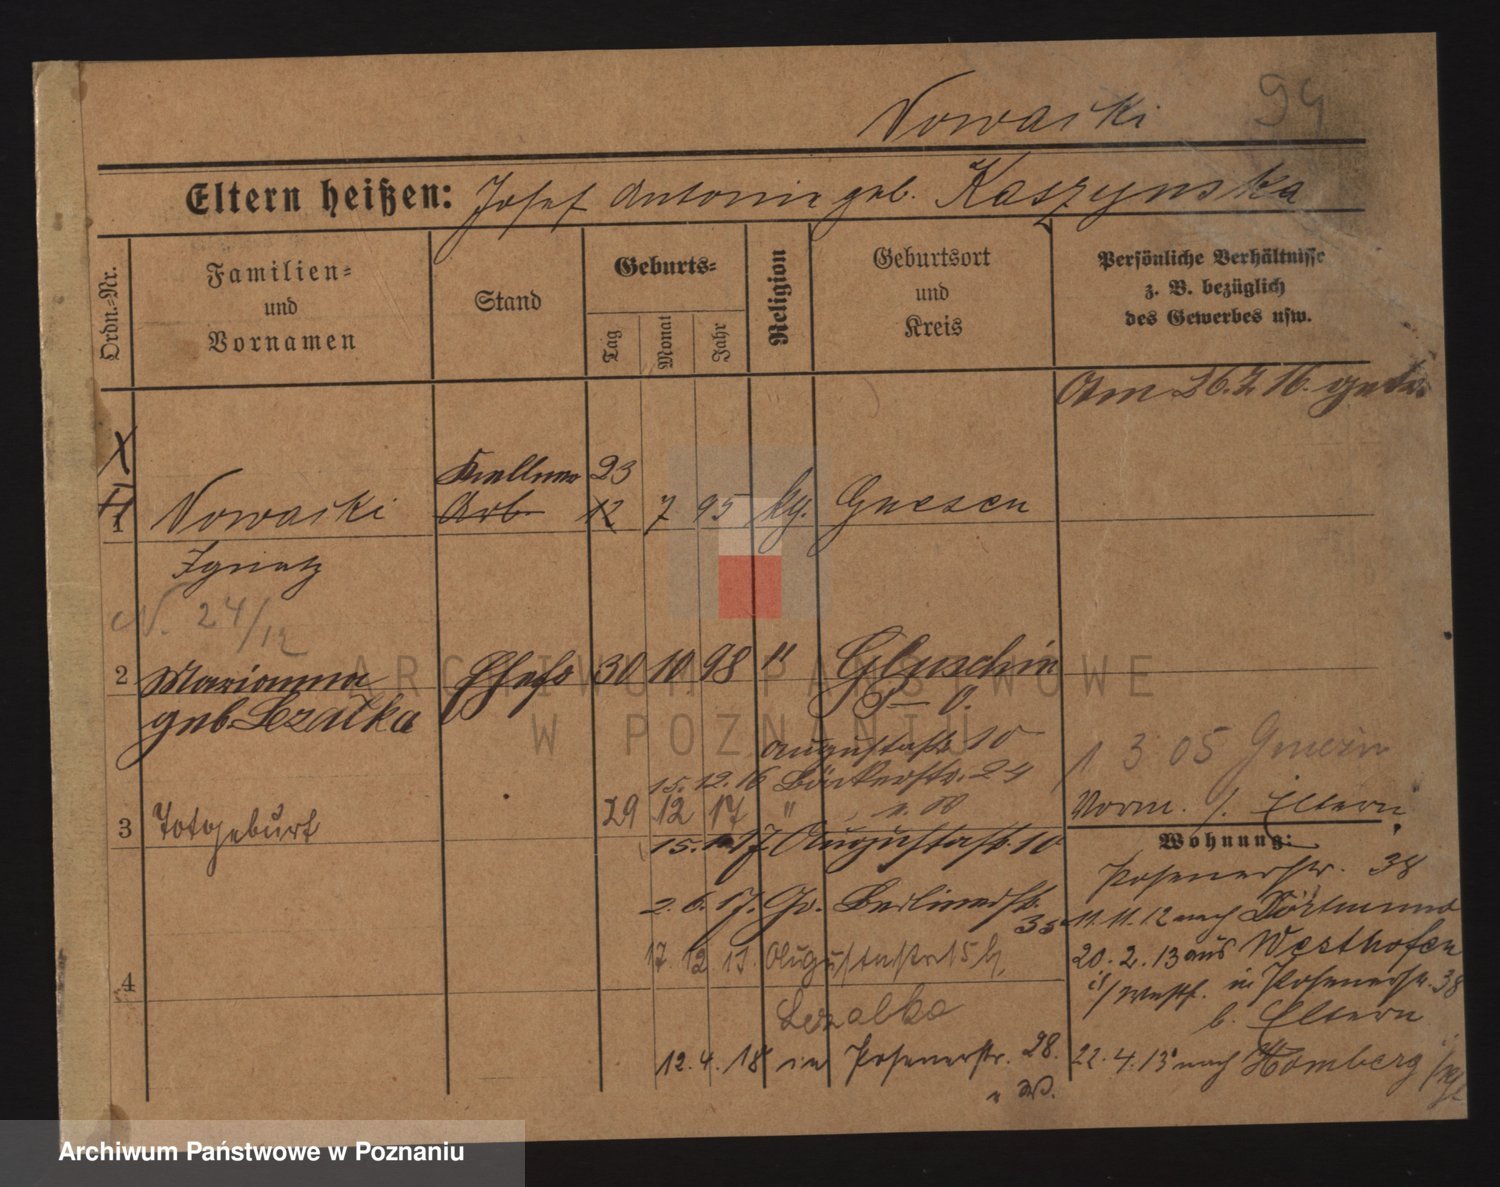 Nowacki 94
Eltern heißen: Josef Antonie geb. Kaszynska
Ordn.-Nr.
Familien- und Vornamen
Stand
Geburts-
Tag
Monat
Jahr
Religion
Geburtsort und Kreis
Persönliche Verhältnisse
z. B. bezüglich
des Gewerbes usw.
Am 26. 2. 16. getr.
X
Kellner 23
1 Nowacki Arb. 12 7 95 kg. Gnesen
Ignatz
N. 24/12
2 Marianna Ehefr 30 10 98 " Gluschin
geb. Lzalka P. O.
Augustastr. 10
15. 12. 16 Bäckerstr. 24
1 3 05 Gnezin
3 Totgeburt 29 12 17 "
Vorm. s. Eltern
Wohnung:
15. 17 Augustastr. 10
Posenerstr. 38
2. 6. 17. Gr. Berlinerstr. 35
11. 11. 12 nach Dortmund
17. 12 17. Augustastr. 15 b.
20. 2. 13 aus Westhofen
4
i/ Westf. in Posenerstr. 38
Lezalka
b. Eltern
12. 4. 18 in Posenerstr. 28.
22. 4. 13 nach Homberg
Archiwum Państwowe w Poznaniu
ARCHIWUM PAŃSTWOWE
W POZNANIU